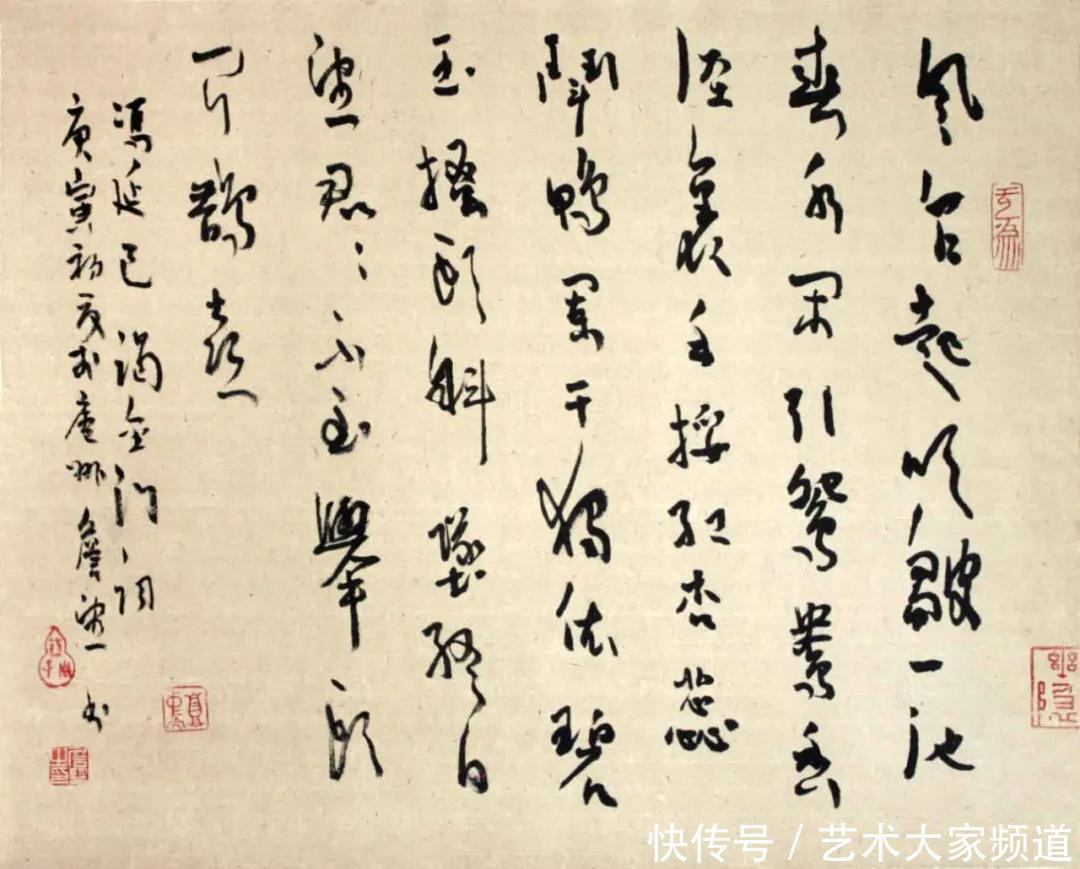 風乍起吹皺一池
春水閑引鴛鴦香
徑裏手挼紅杏蕊
鬥鴨闌干獨依碧
玉搔頭斜墜終日
望君〻不至舉頭
聞鵲喜
馮延巳 謁金門 詞
庚寅初夏於廬州 詹望 書
快传号 / 艺术大家频道